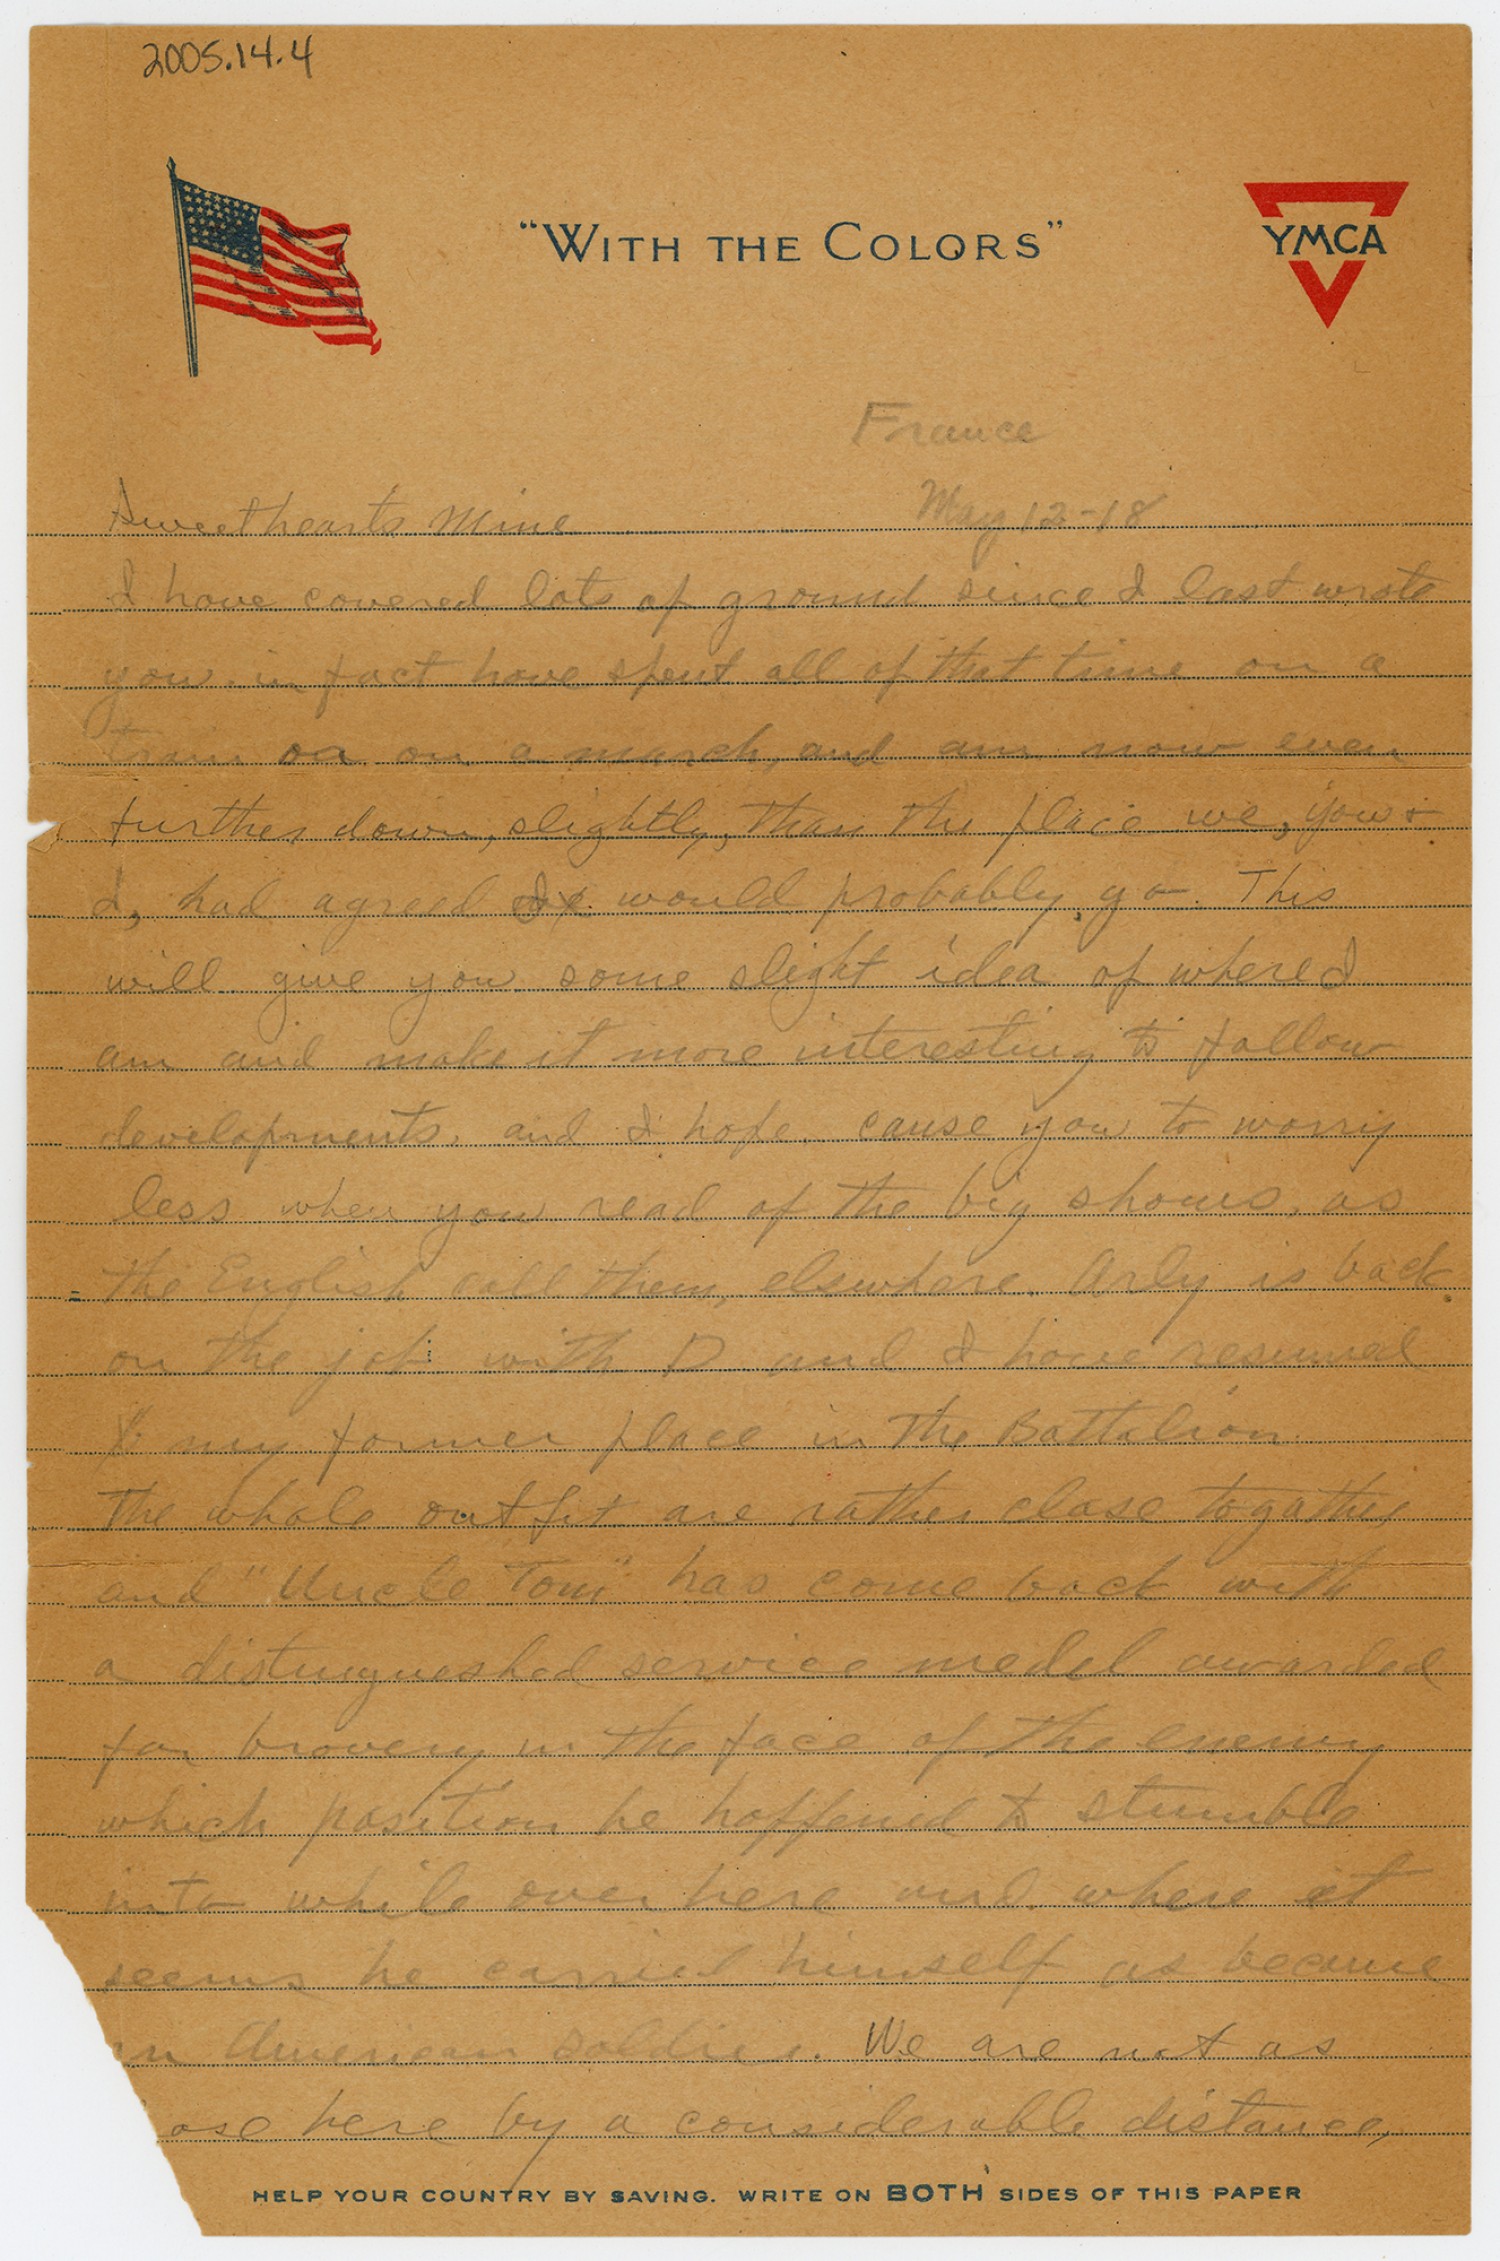 2005.14.4
"WITH THE COLORS"
YMCA
France
Sweethearts Mine May 12-18
I have covered lots of ground since I last wrote
you in fact have spent all of that time on a
train or on a march, and am now even
further down, slightly, than the place we, you +
I, had agreed I would probably go. This
will give you some slight idea of where I
am and make it more interesting to follow
developments, and I hope, cause you to worry
less when you read of the big shows, as
the English call them, elsewhere. Arly is back
on the job with D and I have resumed
my former place in the Battalion
The whole outfit are rather close togather
and "Uncle Tom" has come back with
a distingueshed service medel awarded
for bravery in the face of the enemy
which position he happened to stumble
into while over here and where it
seems he carried himself as became
an American soldier. We are not as
ose here by a considerable distance,
HELP YOUR COUNTRY BY SAVING. WRITE ON BOTH SIDES OF THIS PAPER